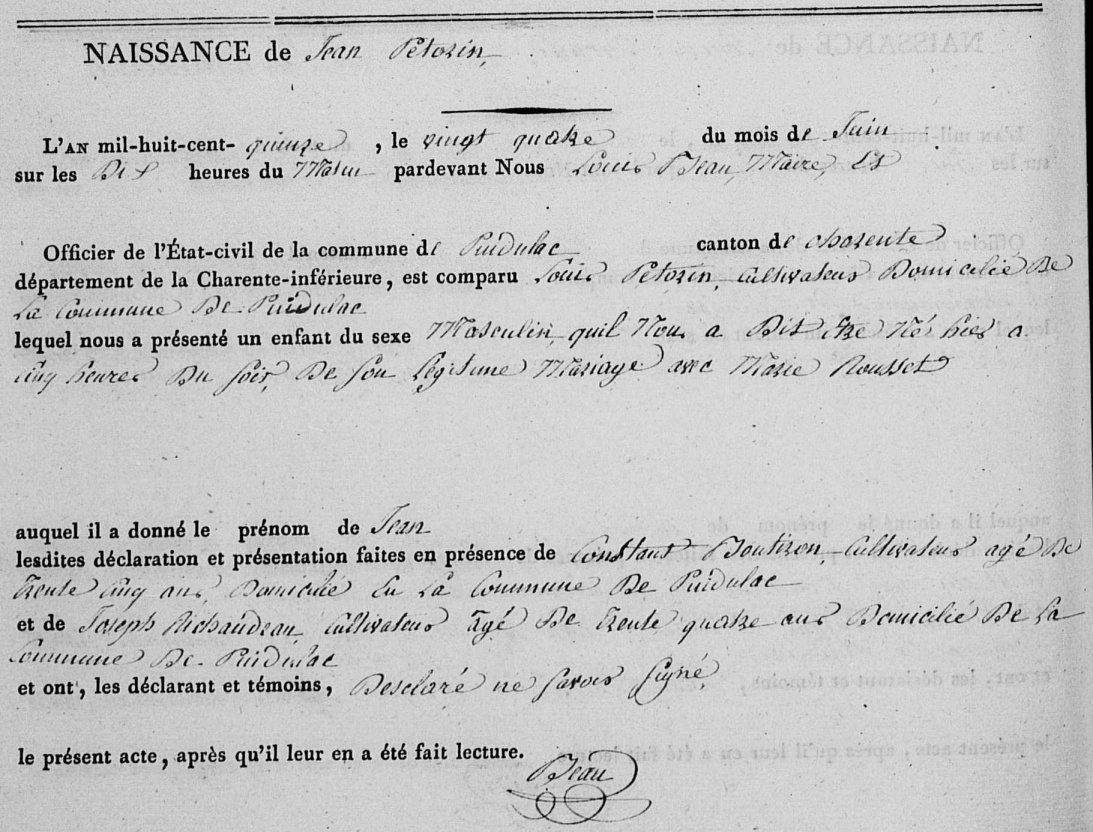 NAISSANCE de Jean Petorin,
L'AN mil-huit-cent- quinze, le vingt quatre du mois de Juin
sur les Dix heures du Matin pardevant Nous Louis Bleau, Maire, Et
Officier de l'État-civil de la commune de Puidulac canton de charente
département de la Charente-inférieure, est comparu Louis Petorin cultivateur Domicilié De
La Commune De Puidulac
lequel nous a présenté un enfant du sexe Masculin, quil Nou a Dit être Nés hier a
cinq heures Du soir, De son Légitime Mariage avec Marie Rousset
auquel il a donné le prénom de Jean
lesdites déclaration et présentation faites en présence de Constant Boutiron, Cultivateur agé De
trente cinq ans, Domicilié En La Commune De Puidulac
et de Joseph Richaudeau Cultivateur Agé De trente quatre ans Domicilié De La
Commune De Puidulac
et ont, les déclarant et témoins, Desclaré ne savoir signé,
le présent acte, après qu'il leur en a été fait lecture.
Bleau